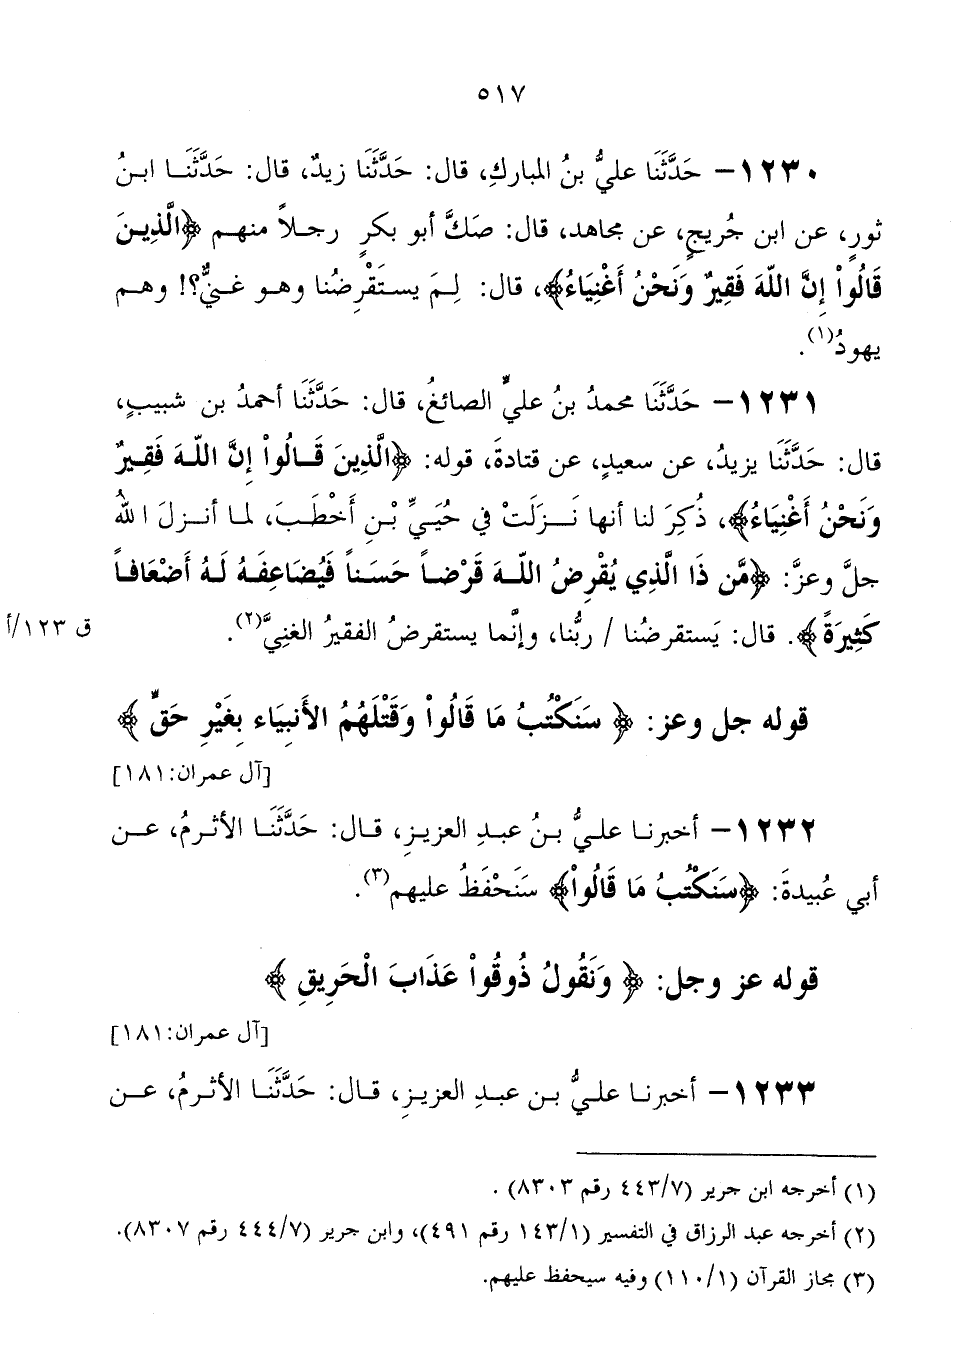 ٥١٧
١٢٣٠– حَدَّثَنَا عليُّ بنُ المباركِ، قال: حَدَّثَنَا زيدٌ، قال: حَدَّثَنَا ابنُ
ثورٍ، عن ابن جُريجٍ، عن مجاهد، قال: صَكَّ أبو بكرٍ رجلاً منهم ﴿الَّذِينَ
قَالُواْ إِنَّ اللّهَ فَقِيرٌ وَنَحْنُ أَغْنِيَاءُ﴾، قال: لِمَ يستَقْرِضُنا وهو غنيٌّ؟! وهم
يهودُ(١).
١٢٣١– حَدَّثَنَا محمدُ بنُ عليٍّ الصائغُ، قال: حَدَّثَنَا أحمدُ بن شبيبٍ،
قال: حَدَّثَنَا يزيدُ، عن سعيدٍ، عن قتادةَ، قوله: ﴿الَّذِينَ قَالُواْ إِنَّ اللّهَ فَقِيرٌ
وَنَحْنُ أَغْنِيَاءُ﴾، ذُكِرَ لنا أنها نَزَلَتْ في حُيَيِّ بْنِ أَخْطَبَ، لما أنزلَ اللهُ
جلَّ وعزَّ: ﴿مَّن ذَا الَّذِي يُقْرِضُ اللّهَ قَرْضاً حَسَناً فَيُضَاعِفَهُ لَهُ أَضْعَافاً
كَثِيرَةً﴾. قال: يَستقرضُنا / ربُّنا، وإنَّما يستقرضُ الفقيرُ الغنِيَّ(٢).
ق ١٢٣/أ
قوله جل وعز: ﴿ سَنَكْتُبُ مَا قَالُواْ وَقَتْلَهُمُ الأَنبِيَاء بِغَيْرِ حَقٍّ ﴾
[آل عمران: ١٨١]
١٢٣٢– أخبرنا عليُّ بنُ عبدِ العزيزِ، قال: حَدَّثَنَا الأثرمُ، عن
أبي عُبيدةَ: ﴿سَنَكْتُبُ مَا قَالُواْ﴾ سَنَحْفَظُ عليهم(٣).
قوله عز وجل: ﴿ وَنَقُولُ ذُوقُواْ عَذَابَ الْحَرِيقِ ﴾
[آل عمران: ١٨١]
١٢٣٣– أخبرنا عليُّ بن عبدِ العزيزِ، قال: حَدَّثَنَا الأثرمُ، عن
(١) أخرجه ابن جرير (٤٤٣/٧ رقم ٨٣٠٣).
(٢) أخرجه عبد الرزاق في التفسير (١٤٣/١ رقم ٤٩١)، وابن جرير (٤٤٤/٧ رقم ٨٣٠٧).
(٣) مجاز القرآن (١١٠/١) وفيه سيحفظ عليهم.